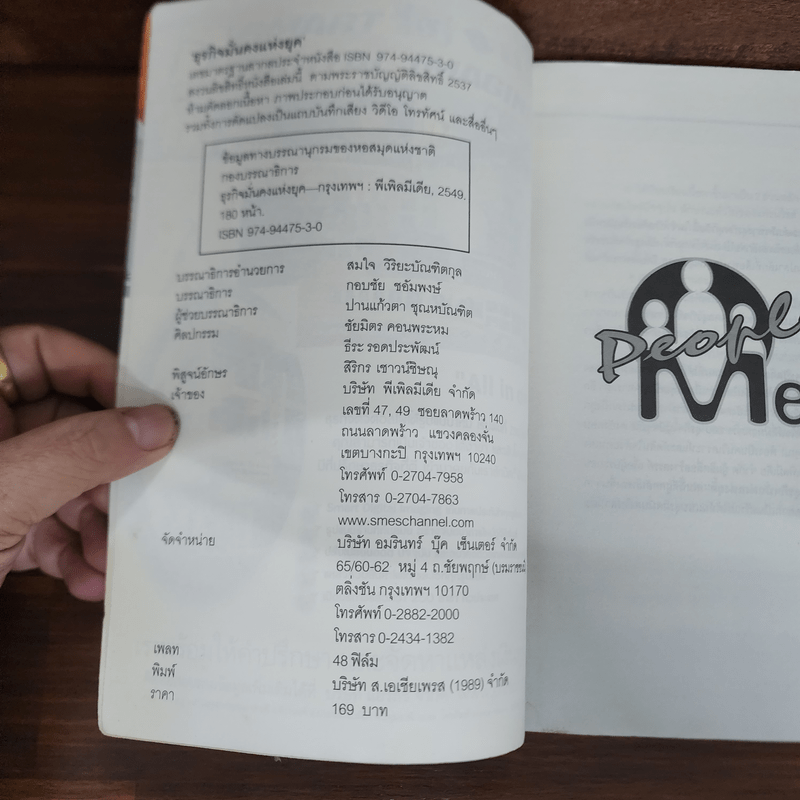 'ธุรกิจมั่นคงแห่งยุค'
เลขมาตรฐานสากลประจำหนังสือ ISBN 974-94475-3-0
สงวนลิขสิทธิ์หนังสือเล่มนี้ ตามพระราชบัญญัติลิขสิทธิ์ 2537
ห้ามคัดลอกเนื้อหา ภาพประกอบก่อนได้รับอนุญาต
รวมทั้งการดัดแปลงเป็นแถบบันทึกเสียง วิดีโอ โทรทัศน์ และสื่ออื่นๆ
ข้อมูลทางบรรณานุกรมของหอสมุดแห่งชาติ
กองบรรณาธิการ
ธุรกิจมั่นคงแห่งยุค—กรุงเทพฯ : พีเพิลมีเดีย, 2549.
180 หน้า.
ISBN 974-94475-3-0
บรรณาธิการอำนวยการ สมใจ วิริยะบัณฑิตกุล
บรรณาธิการ กอบชัย ชอัมพงษ์
ผู้ช่วยบรรณาธิการ ปานแก้วตา ชุณหบัณฑิต
ศิลปกรรม ชัยมิตร คอนพระหม
ธีระ รอดประพัฒน์
พิสูจน์อักษร สิริกร เชาวน์ชิษณุ
เจ้าของ บริษัท พีเพิลมีเดีย จำกัด
เลขที่ 47, 49 ซอยลาดพร้าว 140
ถนนลาดพร้าว แขวงคลองจั่น
เขตบางกะปิ กรุงเทพฯ 10240
โทรศัพท์ 0-2704-7958
โทรสาร 0-2704-7863
www.smeschannel.com
จัดจำหน่าย บริษัท อมรินทร์ บุ๊ค เซ็นเตอร์ จำกัด
65/60-62 หมู่ 4 ถ.ชัยพฤกษ์ (บรมราชชนนี
ตลิ่งชัน กรุงเทพฯ 10170
โทรศัพท์ 0-2882-2000
โทรสาร 0-2434-1382
เพลท 48 ฟิล์ม
พิมพ์ บริษัท ส.เอเซียเพรส (1989) จำกัด
ราคา 169 บาท
People
Me